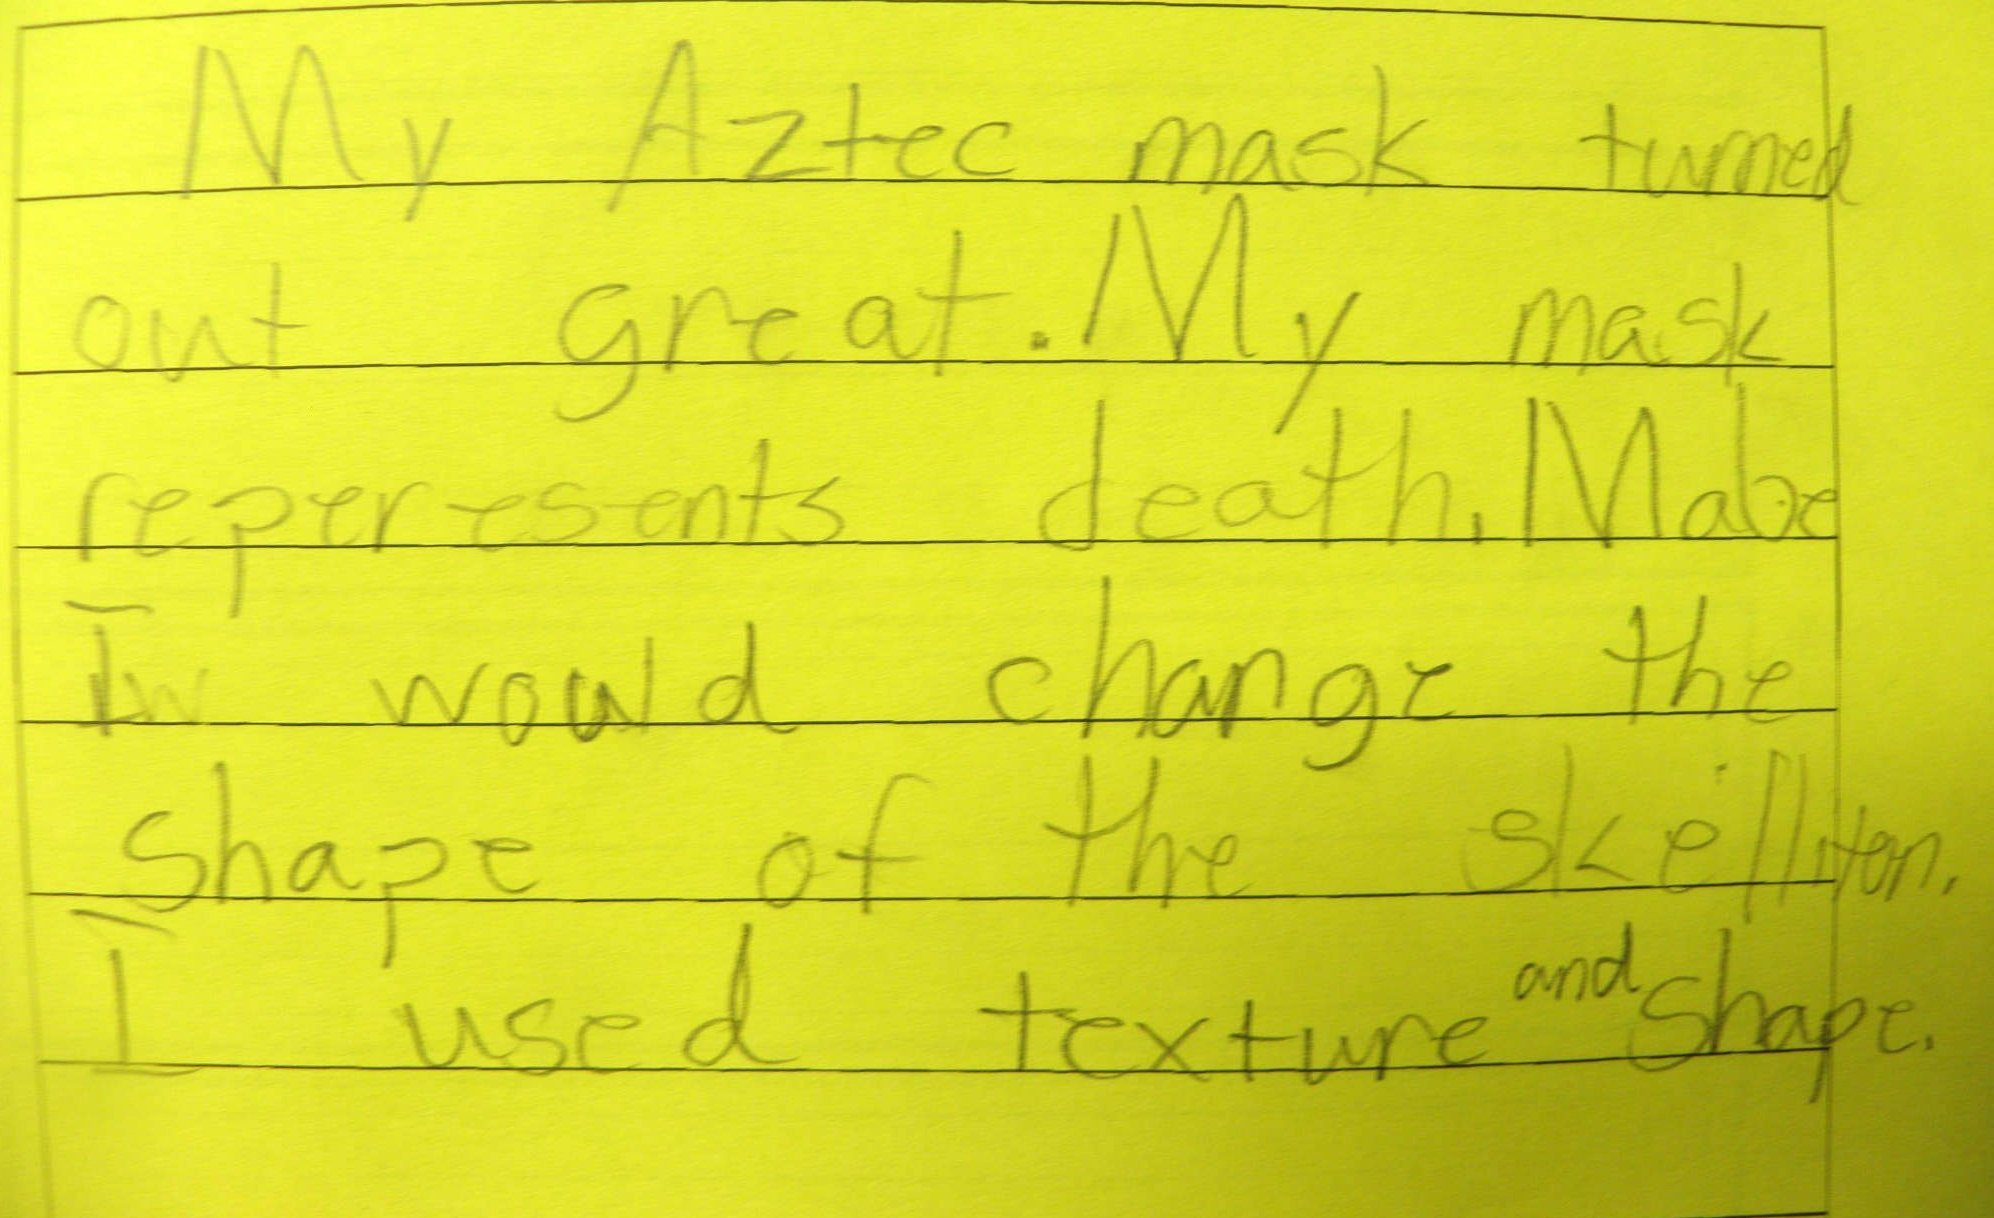 My Aztec mask turned
out great. My mask
reperesents death. Mabe
I would change the
shape of the skelliton.
I used texture and shape.